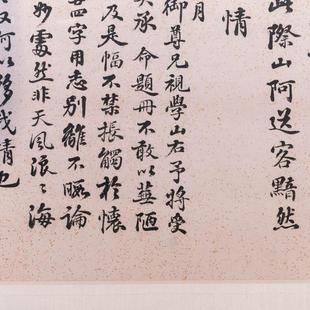 此際山阿送客黯然
情
月
御尊兄視學山右予將受
承命題冊不敢以蕪陋
及是幅不禁振觸於懷
四字用志別離不暇論
妙處然非天風浪浪海
又何以移我情也